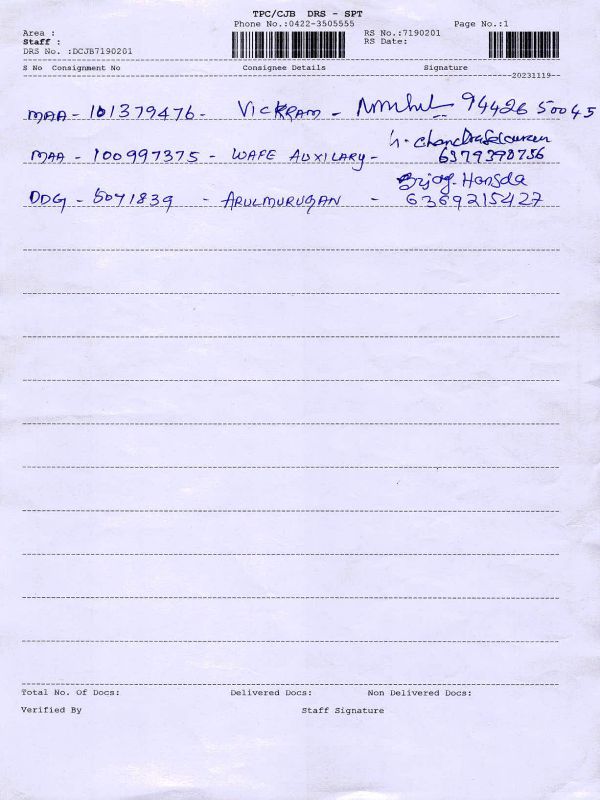 TPC/CJB DRS - SPT
Phone No.:0422-3505555 Page No.:1
Area : RS No.:7190201
Staff : RS Date:
DRS No. :DCJB7190201
S No Consignment No Consignee Details Signature
20231119
MAA - 101379476 - VICKRAM - 94426 50045
MAA - 100997375 - WAFE AUXILARY - 6379390756
DDG - 5071839 - ARULMURUGAN - Hansda
6369215427
Total No. Of Docs: Delivered Docs: Non Delivered Docs:
Verified By Staff Signature